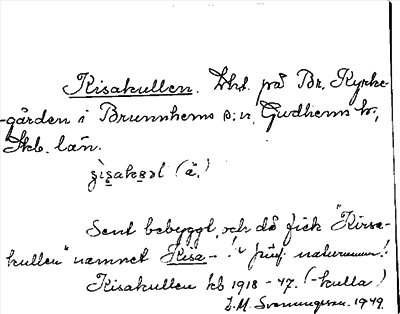 Kisakullen. Lht. på Br. Kyrke-
-gården i Brunnhems s:n, Gudhems hd,
Skb. län.
(ä.)
Sent bebyggt, och då fick "Kirse-
kullen" namnet Kisa-! Jämf. naturnamn!
Kisakullen kb 1918-47. (-kulla!)
D.M. Svenungsson. 1949.